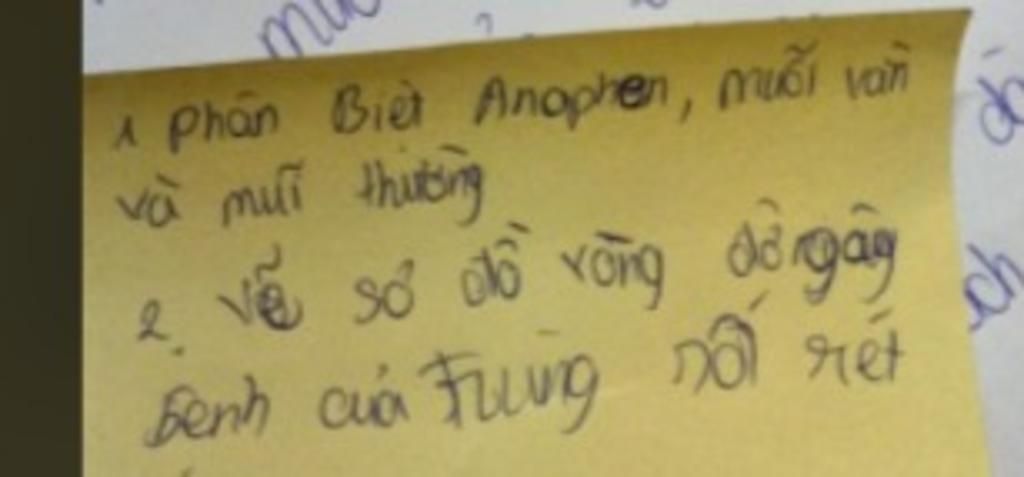 1 phân Biệt Anophen, muỗi vằn
và muĩ thường
2. vẽ sơ đồ vòng đồ ngây
bệnh của trung nốt rét